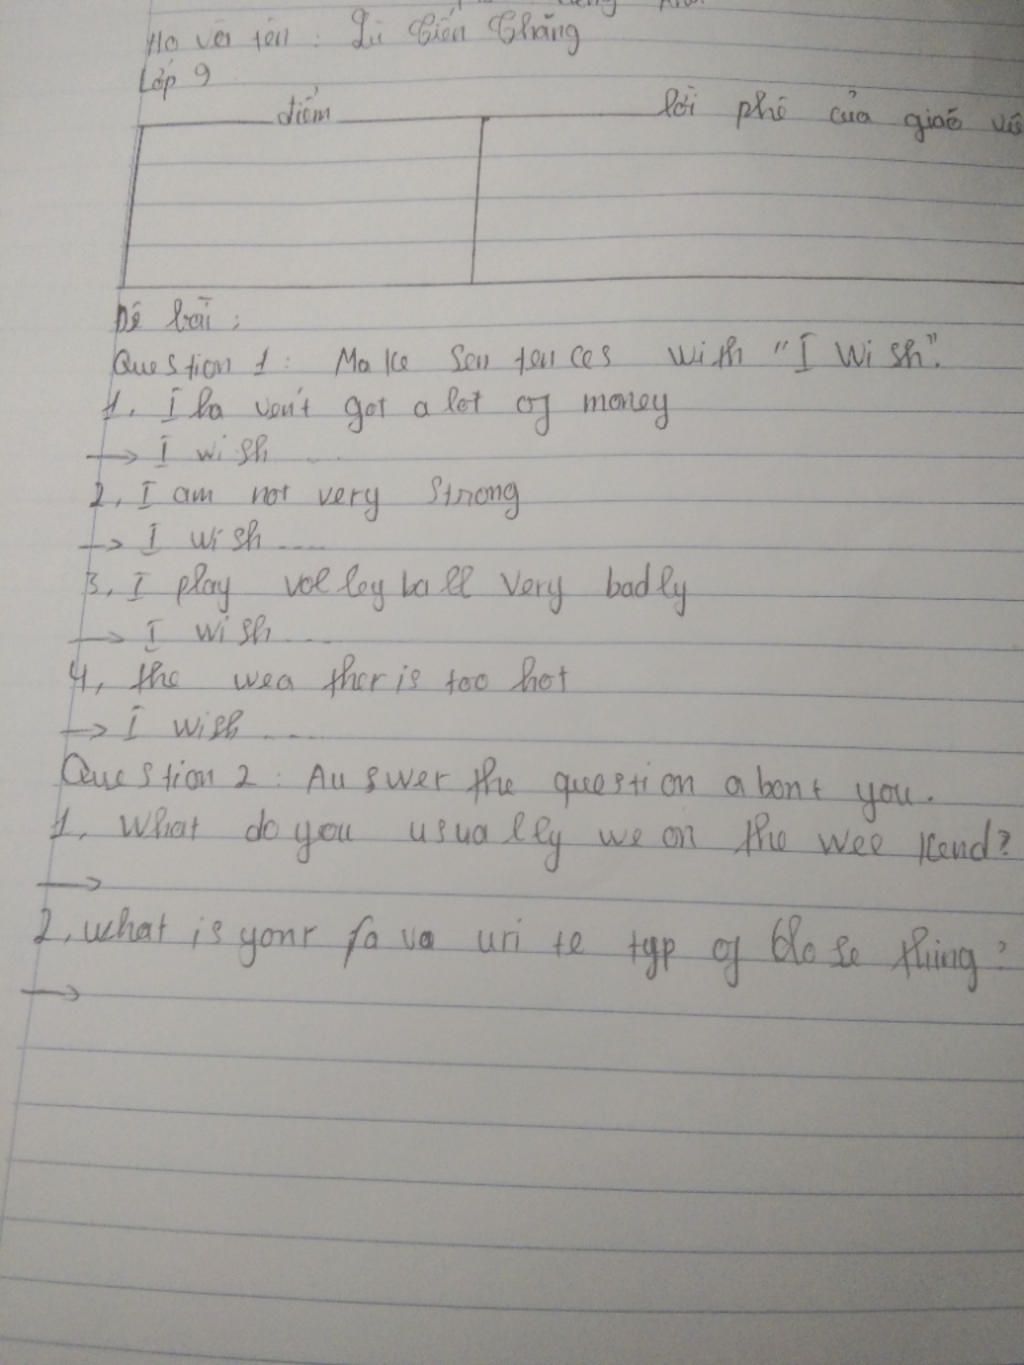 Họ và tên: Lù Tiến Thăng
Lớp 9
điểm lời phê của giáo viê
Đề bài:
Question 1: Make Sentences with "I Wish".
1. I haven't got a lot of money
→ I wish ....
2, I am not very strong
→ I wish ....
3, I play volleyball very badly
→ I wish ....
4, the weather is too hot
→ I wish ....
Question 2: Answer the question about you.
1. What do you usually we on the weekend?
→
2, what is your favaurite typ of
→